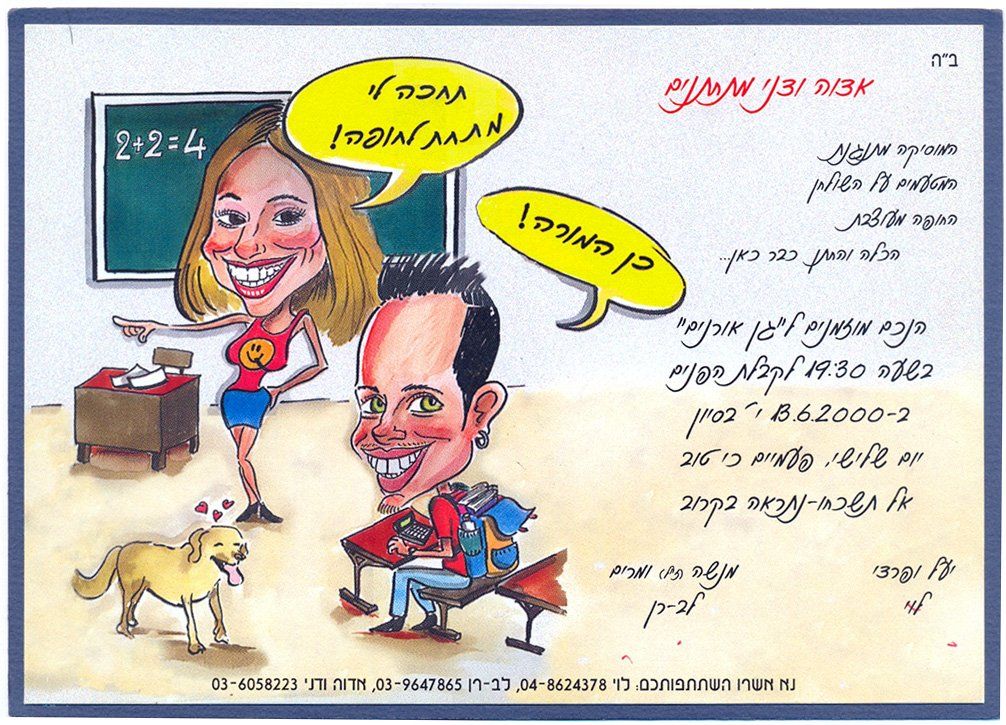 ב"ה
אדוה ודני מתחתנים
המוסיקה מתנגנת
המטעמים על השולחן
החופה מעוצבת
הכלה והחתן כבר כאן...
הנכם מוזמנים ל"גן אורנים"
בשעה 19:30 לקבלת הפנים
ב-13.6.2000 י' בסיון
יום שלישי, פעמיים כי טוב
אל תשכחו-נתראה בקרוב
יעל ופרדי
לוי
מנשה (ז"ל) ומרים
לב-רן
2+2=4
תחכה לי
מתחת לחופה!
כן המורה!
נא אשרו השתתפותכם: לוי 04-8624378, לב-רן 03-9647865, אדוה ודני 03-6058223